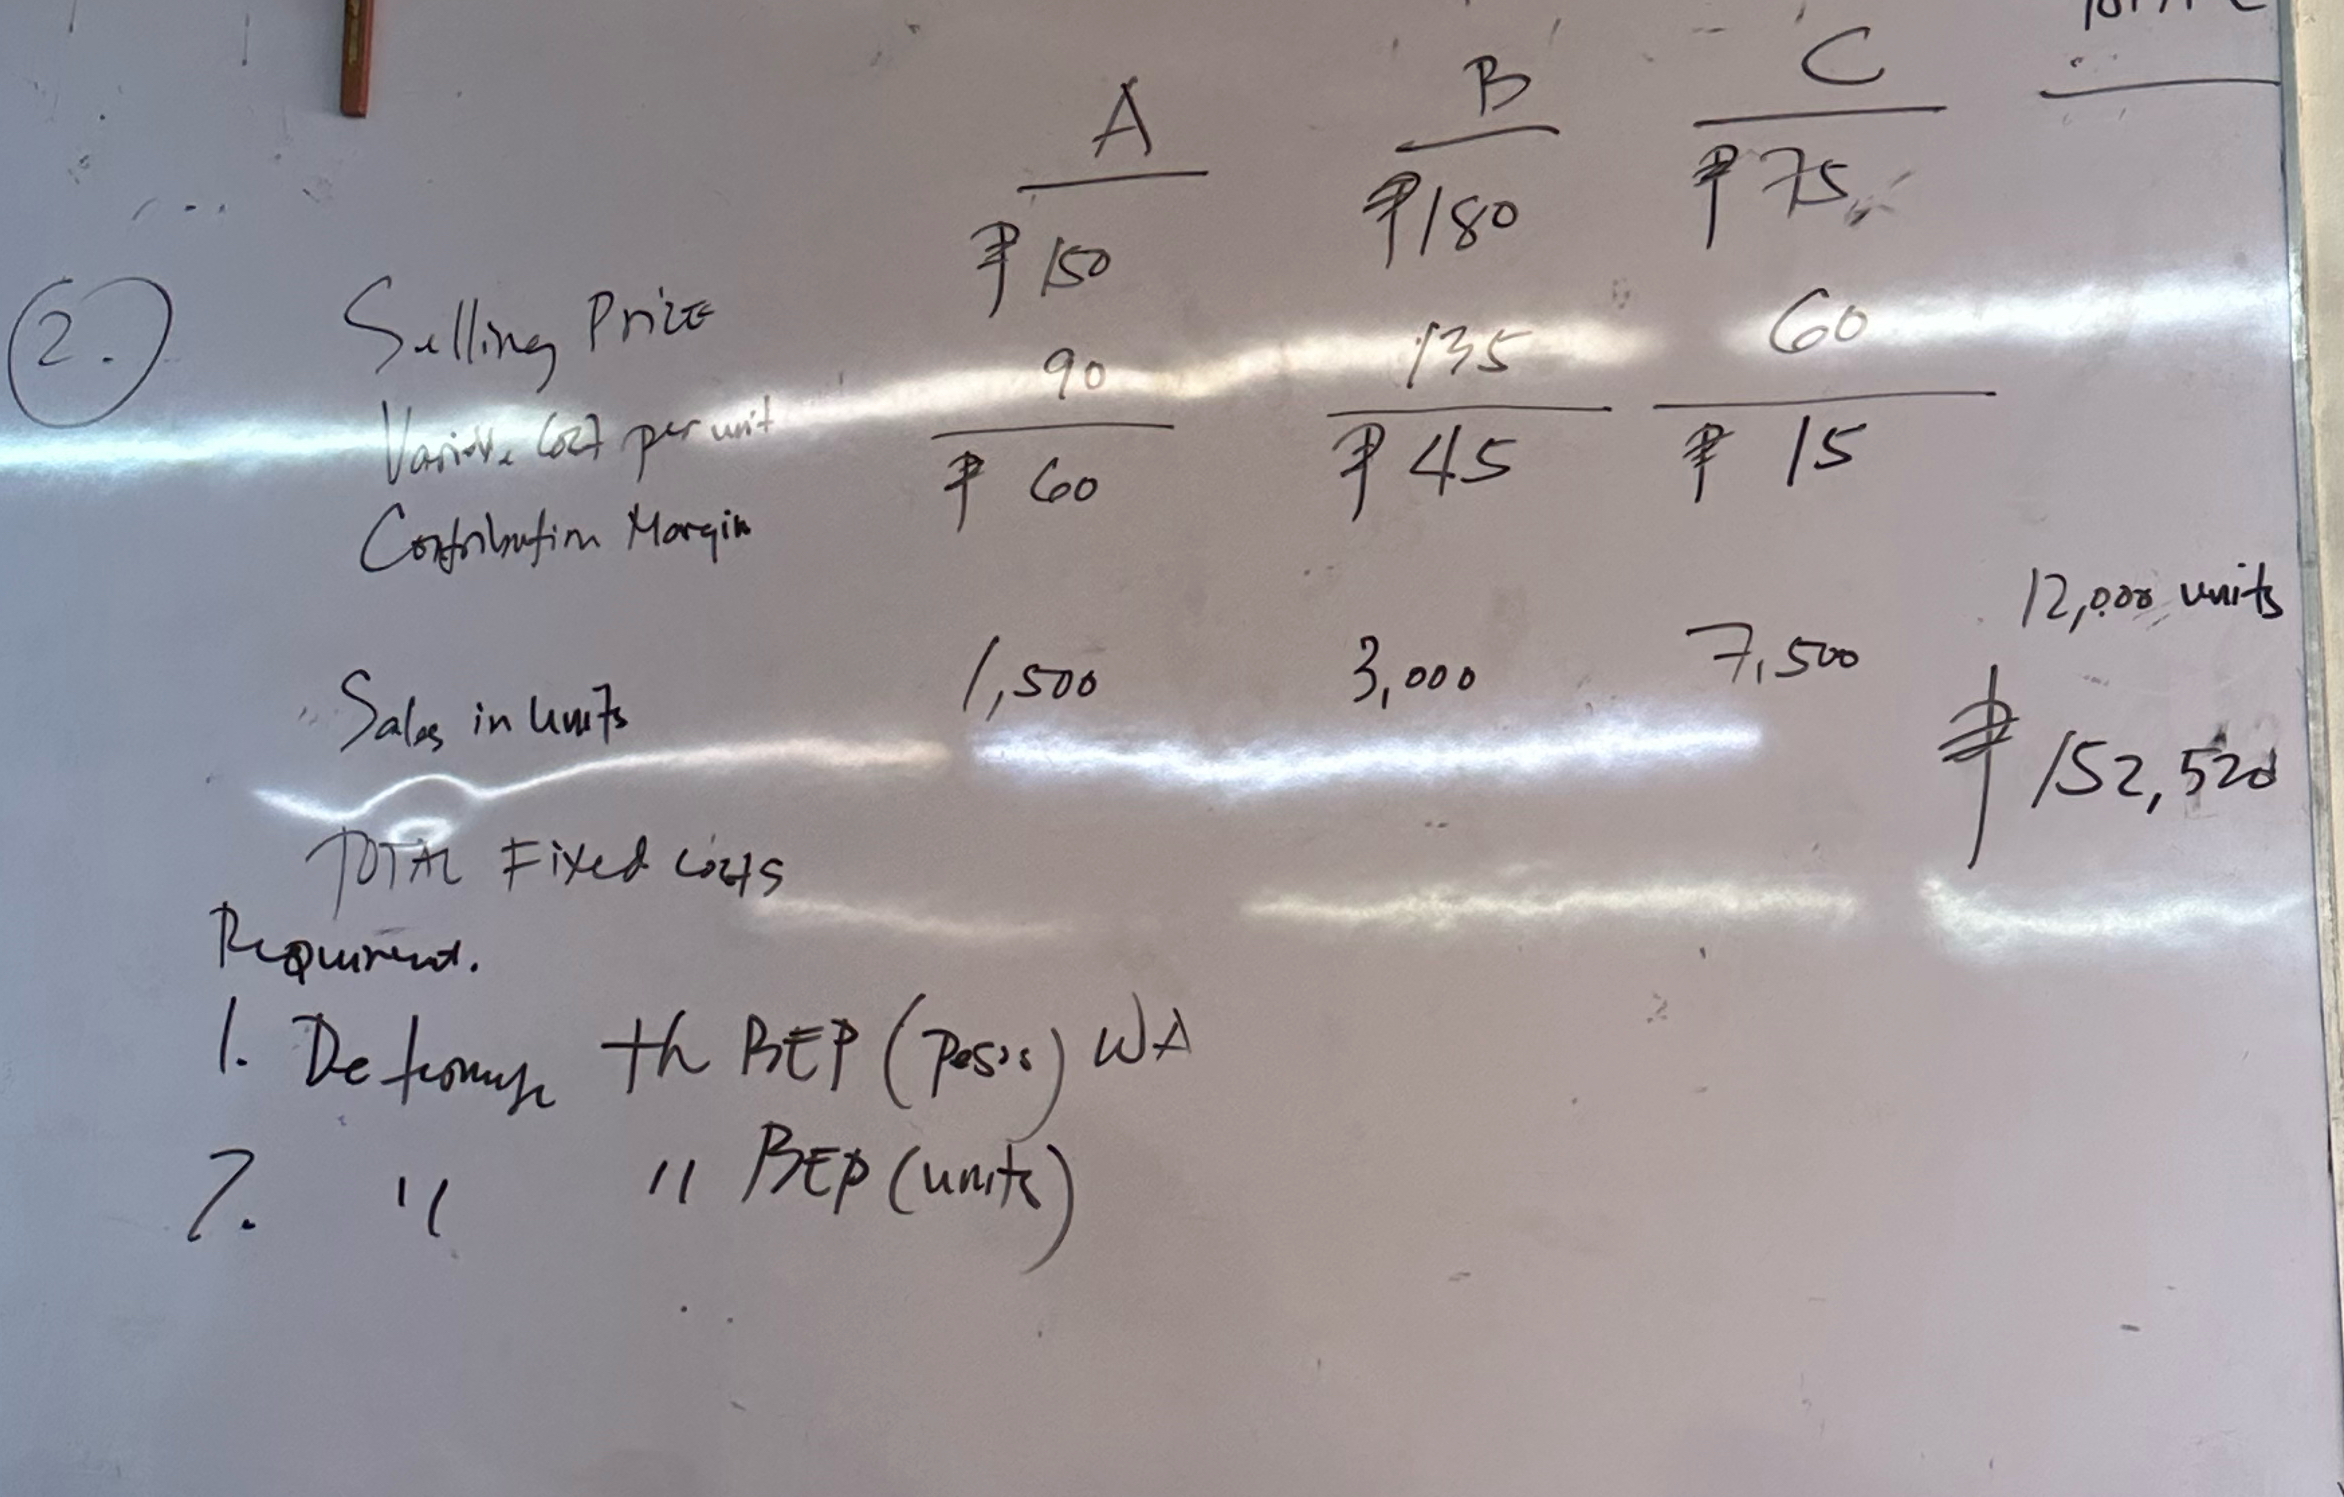 TOTAL
A B C
2. Selling Price ₱150 ₱180 ₱75
Variable Cost per unit 90 135 60
Contribution Margin ₱ 60 ₱ 45 ₱ 15
Sales in Units 1,500 3,000 7,500 12,000 units
TOTAL Fixed Costs ₱ 152,520
Requirement.
1. Determine th BEP (pesos) WA
2. " " BEP (units)